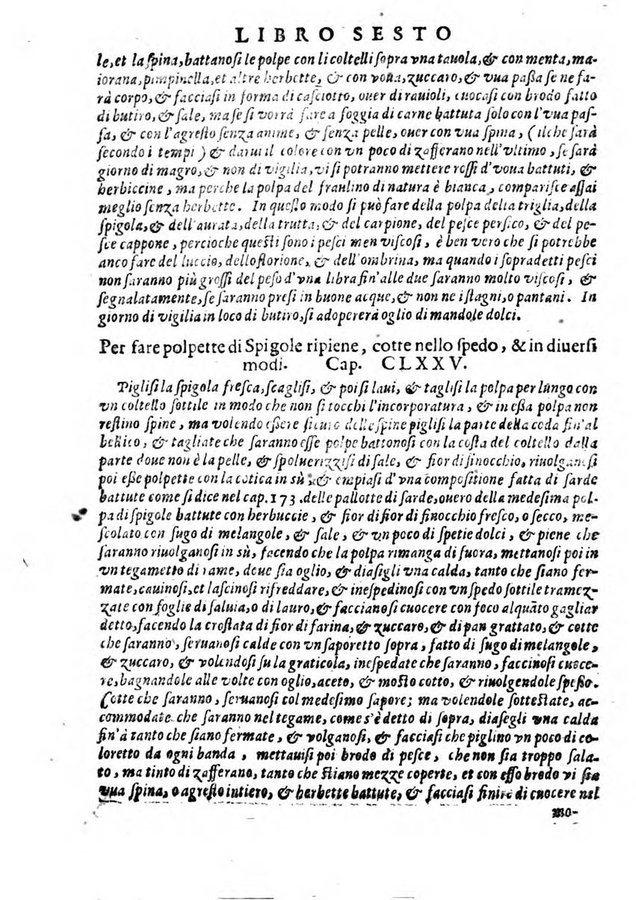 LIBRO SESTO
le, et la spina, battanosi le polpe con li coltelli sopra vna tauola, & con menta, ma-
iorana, pimpinella, et altre herbette, & con voua, zuccaro, & vua passa se ne fa-
rà corpo, & facciasi in forma di casciotto, ouer di rauioli, cuocasi con brodo fatto
di butiro, & sale, ma se si vorrà fare a foggia di carne battuta solo con l'vua pas-
sa, & con l'agresto senza anime, & senza pelle, ouer con vua spina, (ilche sarà
secondo i tempi) & darui il colore con vn poco di zafferano nell'vltimo, se sarà
giorno di magro, & non di vigilia, vi si potranno mettere rossi d'voua battuti, &
herbiccine, ma perche la polpa del fraulino di natura è bianca, comparisce assai
meglio senza herbette. In questo modo si può fare della polpa della triglia, della
spigola, & dell'aurata, della trutta, & del carpione, del pesce persico, & del pe-
sce cappone, percioche questi sono i pesci men viscosi, è ben vero che si potrebbe
anco fare del luccio, dello storione, & dell'ombrina, ma quando i sopradetti pesci
non saranno più grossi del peso d'vna libra fin'alle due saranno molto viscosi, &
segnalatamente, se saranno presi in buone acque, & non ne i stagni, o pantani. In
giorno di vigilia in loco di butiro, si adopererà oglio di mandole dolci.
Per fare polpette di Spigole ripiene, cotte nello spedo, & in diuersi
modi. Cap. CLXXV.
Piglisi la spigola fresca, scaglisi, & poi si laui, & taglisi la polpa per lungo con
vn coltello sottile in modo che non si tocchi l'incorporatura, & in essa polpa non
restino spine, ma volendo essere sicuro delle spine piglisi la parte della coda fin'al
bellico, & tagliate che saranno esse polpe battonosi con la costa del coltello dalla
parte doue non è la pelle, & spoluerizzisi di sale, & fior di finocchio, riuolganosi
poi esse polpette con la cotica in sù & empiasi d'vna compositione fatta di sarde
battute come si dice nel cap. 173. delle pallotte di sarde, ouero della medesima pol-
pa di spigole battute con herbuccie, & fior di fior di finocchio fresco, o secco, me-
scolato con sugo di melangole, & sale, & vn poco di spetie dolci, & piene che
saranno riuolganosi in sù, facendo che la polpa rimanga di fuora, mettanosi poi in
vn tegametto di rame, doue sia oglio, & diasigli vna calda, tanto che siano fer-
mate, cauinosi, et lascinosi rifreddare, & inspedinosi con vn spedo sottile tramez-
zate con foglie di saluia, o di lauro, & faccianosi cuocere con foco alquãto gagliar
detto, facendo la crostata di fior di farina, & zuccaro, & di pan grattato, & cotte
che saranno, seruanosi calde con vn saporetto sopra, fatto di sugo di melangole,
& zuccaro, & volendosi su la graticola, inspedate che saranno, faccinosi cuoce-
re, bagnandole alle volte con oglio, aceto, & mosto cotto, & riuolgendole spesso.
Cotte che saranno, seruanosi col medesimo sapore; ma volendole sottestate, ac-
commodate che saranno nel tegame, come s'è detto di sopra, diasegli vna calda
fin'à tanto che siano fermate, & volganosi, & facciasi che piglino vn poco di co-
loretto da ogni banda, mettauisi poi brodo di pesce, che non sia troppo sala-
to, ma tinto di zafferano, tanto che stiano mezze coperte, et con esso brodo vi sia
vua spina, o agresto intiero, & herbette battute, & facciasi finire di cuocere nel
mo-